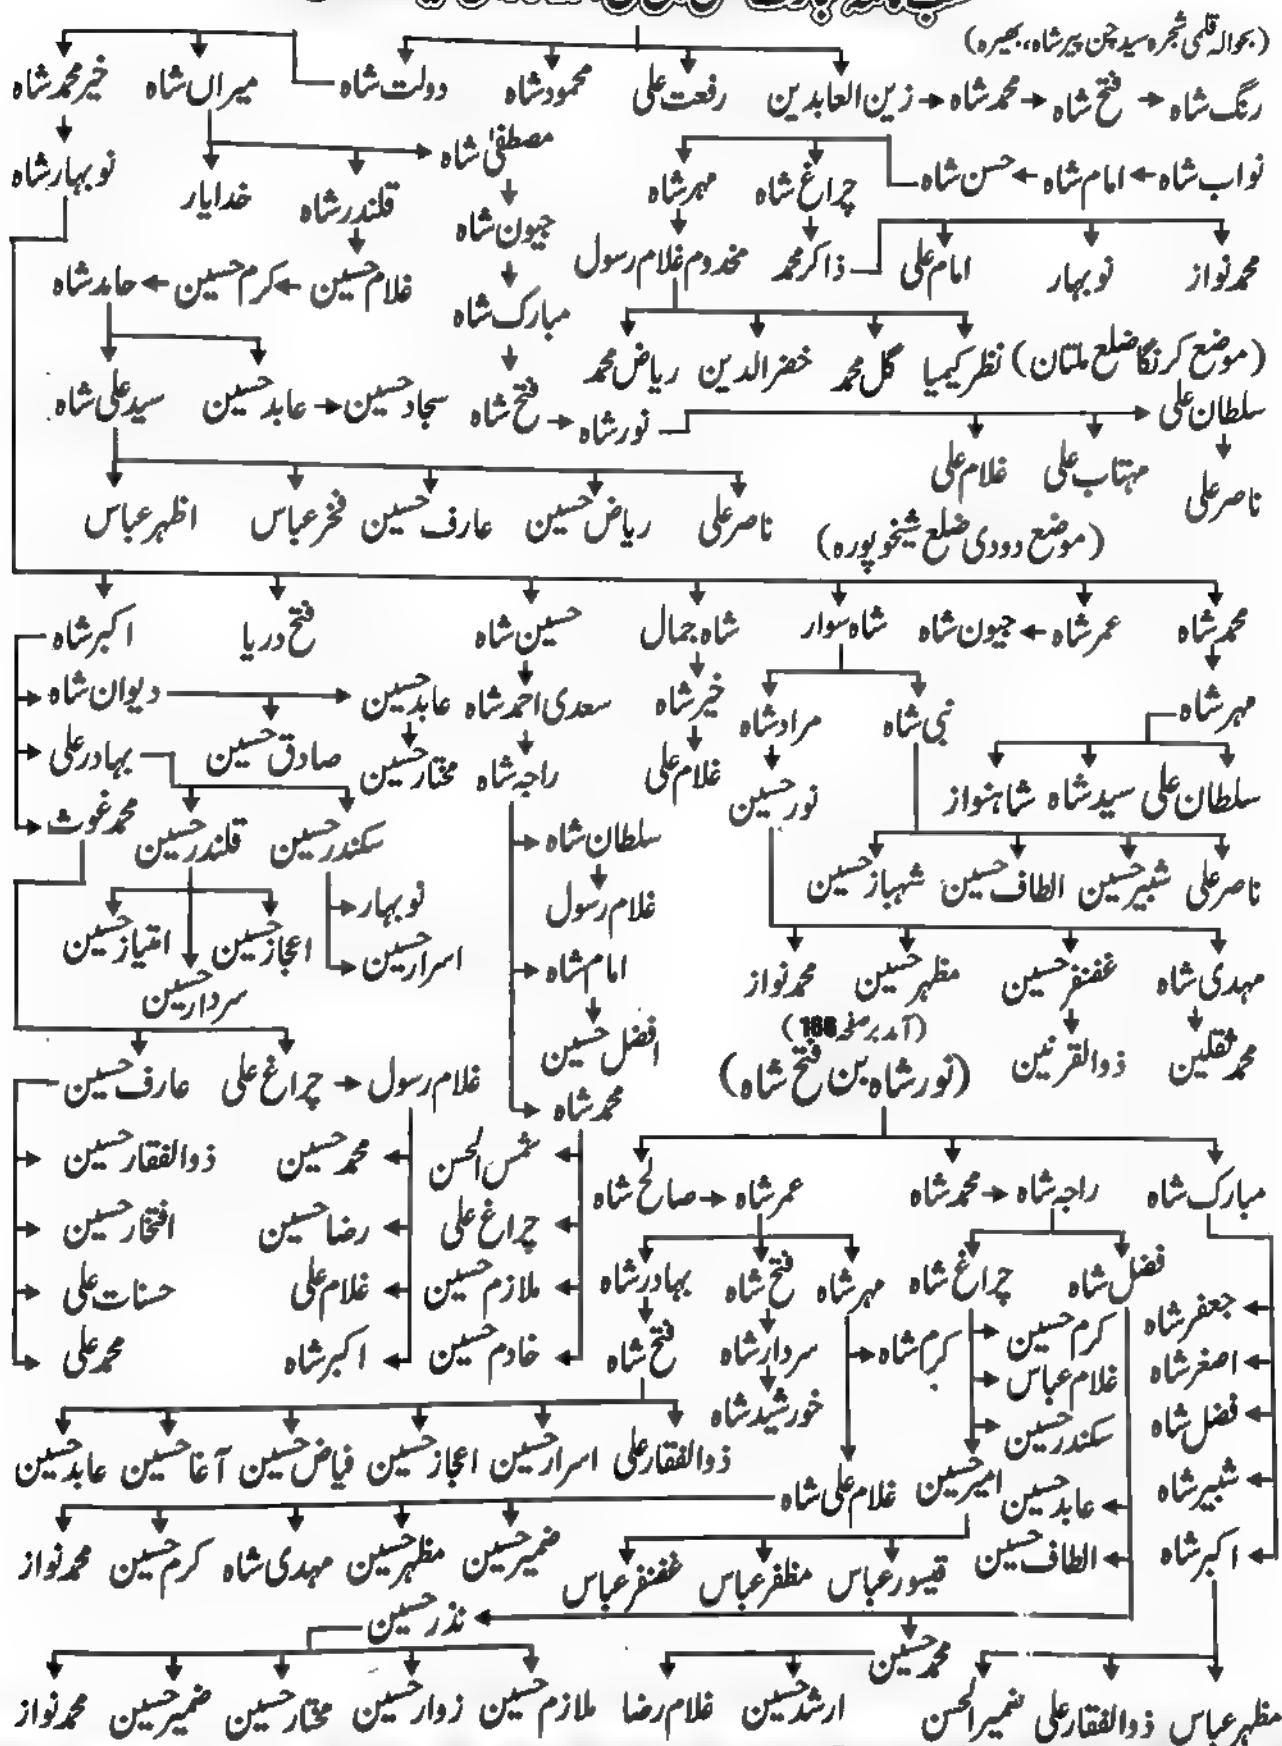 (بحوالہ قلمی شجرہ سید چن پیر شاہ، بھیرہ)
رنگ شاہ فتح شاہ محمد شاہ زین العابدین رفعت علی محمود شاہ دولت شاہ میراں شاہ خیر محمد شاہ
نواب شاہ امام شاہ حسن شاہ چراغ شاہ مہر شاہ مصطفیٰ شاہ قلندر شاہ خدایار نو بہار شاہ
محمد نواز نو بہار امام علی ذاکر محمد مخدوم غلام رسول جیون شاہ غلام حسین کرم حسین حامد شاہ
مبارک شاہ
(موضع کرنگا ضلع ملتان) نظر کیمیا گل محمد خضر الدین ریاض محمد
سلطان علی نور شاہ فتح شاہ سجاد حسین عابد حسین سید علی شاہ
ناصر علی مہتاب علی غلام علی
ناصر علی ریاض حسین عارف حسین فخر عباس اظہر عباس
(موضع دودی ضلع شیخوپورہ)
محمد شاہ عمر شاہ جیون شاہ شاہ سوار شاہ جمال حسین شاہ فتح دریا اکبر شاہ
مہر شاہ نبی شاہ مراد شاہ خیر شاہ سعدی احمد شاہ عابد حسین دیوان شاہ
سلطان علی سید شاہ شاہنواز نور حسین غلام علی راجہ شاہ مختار حسین صادق حسین بہادر علی
سلطان شاہ سکندر حسین قلندر حسین محمد غوث
ناصر علی شبیر حسین الطاف حسین شہباز حسین غلام رسول نو بہار اعجاز حسین امتیاز حسین
مہدی شاہ غضنفر حسین مظہر حسین محمد نواز امام شاہ اسرار حسین سردار حسین
(آمد بر صفحہ 186)
محمد ثقلین ذوالقرنین افضل حسین
(نور شاہ بن فتح شاہ)
محمد شاہ غلام رسول چراغ علی عارف حسین
مبارک شاہ راجہ شاہ محمد شاہ عمر شاہ صالح شاہ شمس الحسن محمد حسین ذوالفقار حسین
فضل شاہ چراغ شاہ مہر شاہ فتح شاہ بہادر شاہ چراغ علی رضا حسین افتخار حسین
جعفر شاہ کرم حسین کرم شاہ سردار شاہ فتح شاہ ملازم حسین غلام علی حسنات علی
اصغر شاہ غلام عباس خورشید شاہ خادم حسین اکبر شاہ محمد علی
فضل شاہ سکندر حسین
ذوالفقار علی اسرار حسین اعجاز حسین فیاض حسین آغا حسین عابد حسین
شبیر شاہ عابد حسین امیر حسین غلام علی شاہ
اکبر شاہ الطاف حسین قیسور عباس مظفر عباس غضنفر عباس ضمیر حسین مظہر حسین مہدی شاہ کرم حسین محمد نواز
محمد حسین نذر حسین
مظہر عباس ذوالفقار علی ضمیر الحسن ارشد حسین غلام رضا ملازم حسین زوار حسین مختار حسین ضمیر حسین محمد نواز